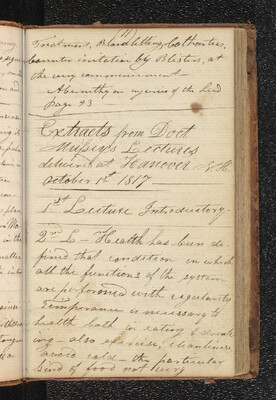 Treatment, Bloodletting, Cathartics,
counter irritation by Blisters, at
the very commencement —
Abernethy on injuries of the head
page 43
Extracts from Doct
Mussey's Lectures
delivered at Hanover N.H.
October 1st 1817
1st Lecture Introductory.
2nd L — Health has been de
fined that condition in which
all the functions of the system
are performed with regularity
Temperance is necessary to
health both in eating & drink
ing — also exercise, cleanliness
avoid cold — the particular
kind of food not very